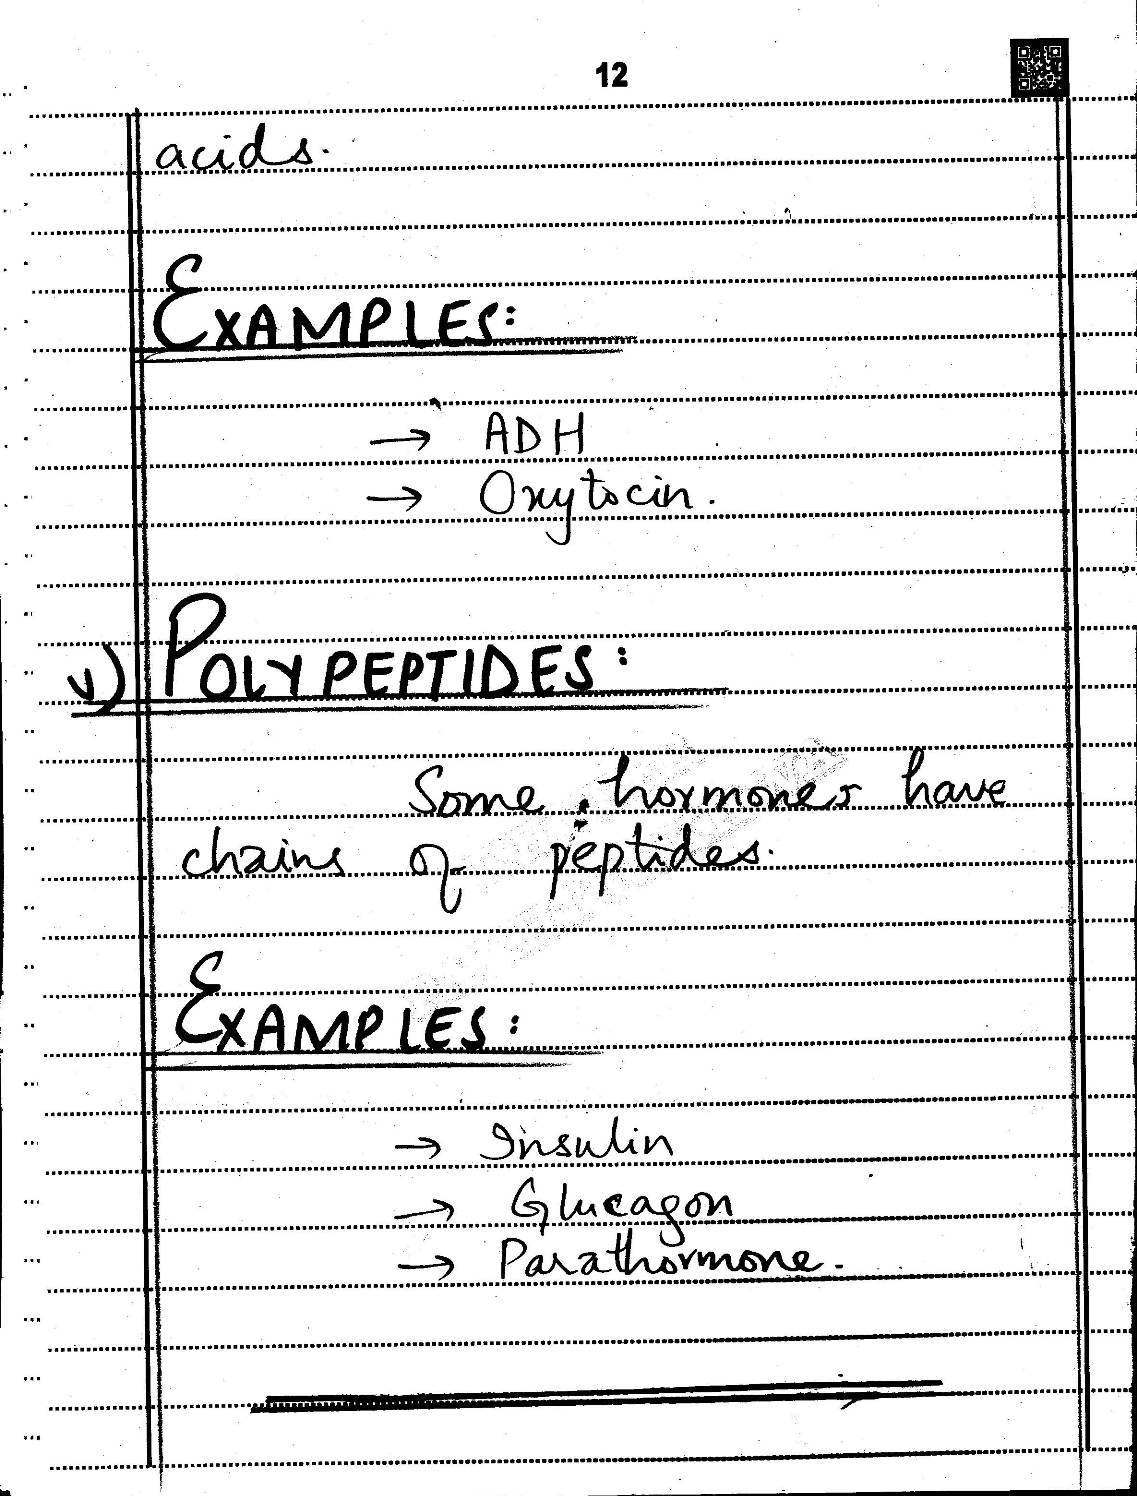 12
acids.
EXAMPLES:
→ ADH
→ Oxytocin.
v) POLYPEPTIDES:
Some hormones have
chains of peptides.
EXAMPLES:
→ Insulin
→ Glucagon
→ Parathormone.